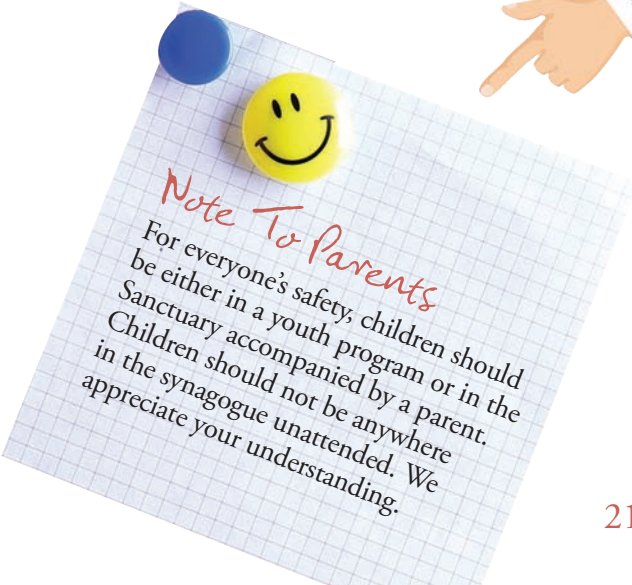 Note To Parents
For everyone's safety, children should
be either in a youth program or in the
Sanctuary accompanied by a parent.
Children should not be anywhere
in the synagogue unattended. We
appreciate your understanding.
21